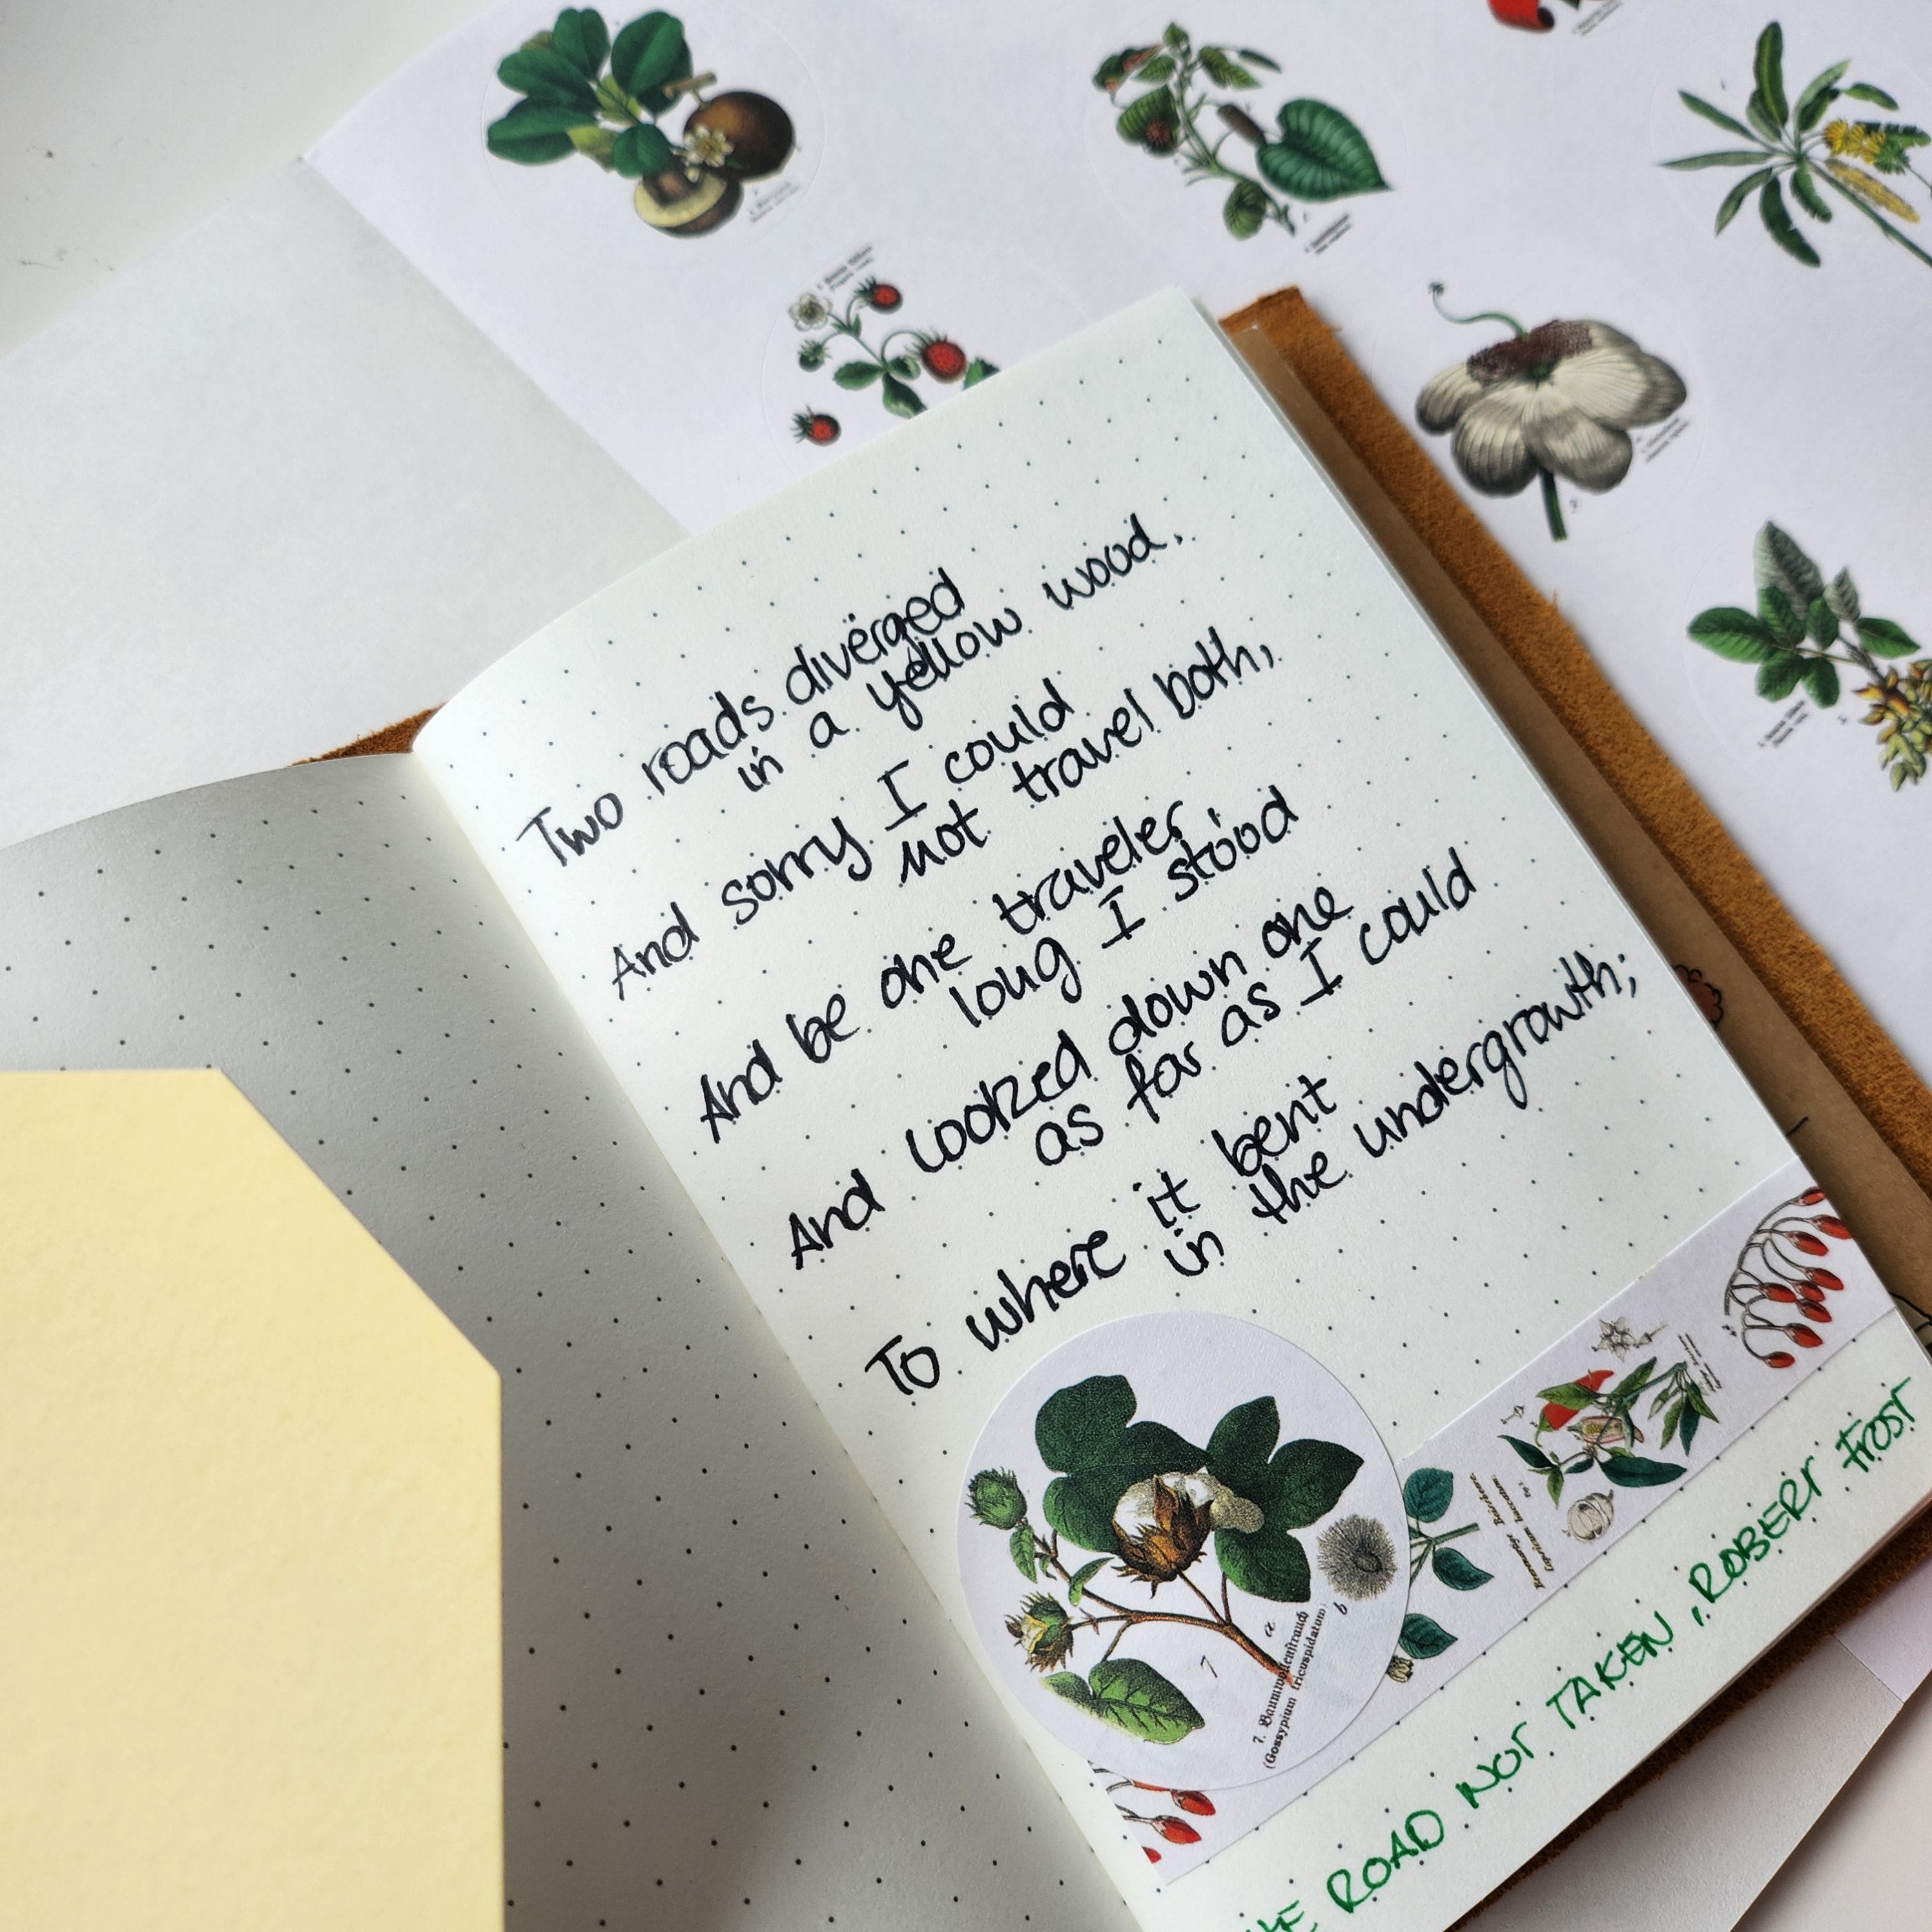 Two roads diverged
in a yellow wood,
And sorry I could
not travel both,
And be one traveler,
long I stood
And looked down one
as far as I could
To where it bent
in the undergrowth;
7
a
b
7. Baumwollenstrauch
(Gossypium tricuspidatum)
ROAD NOT TAKEN, ROBERT FROST